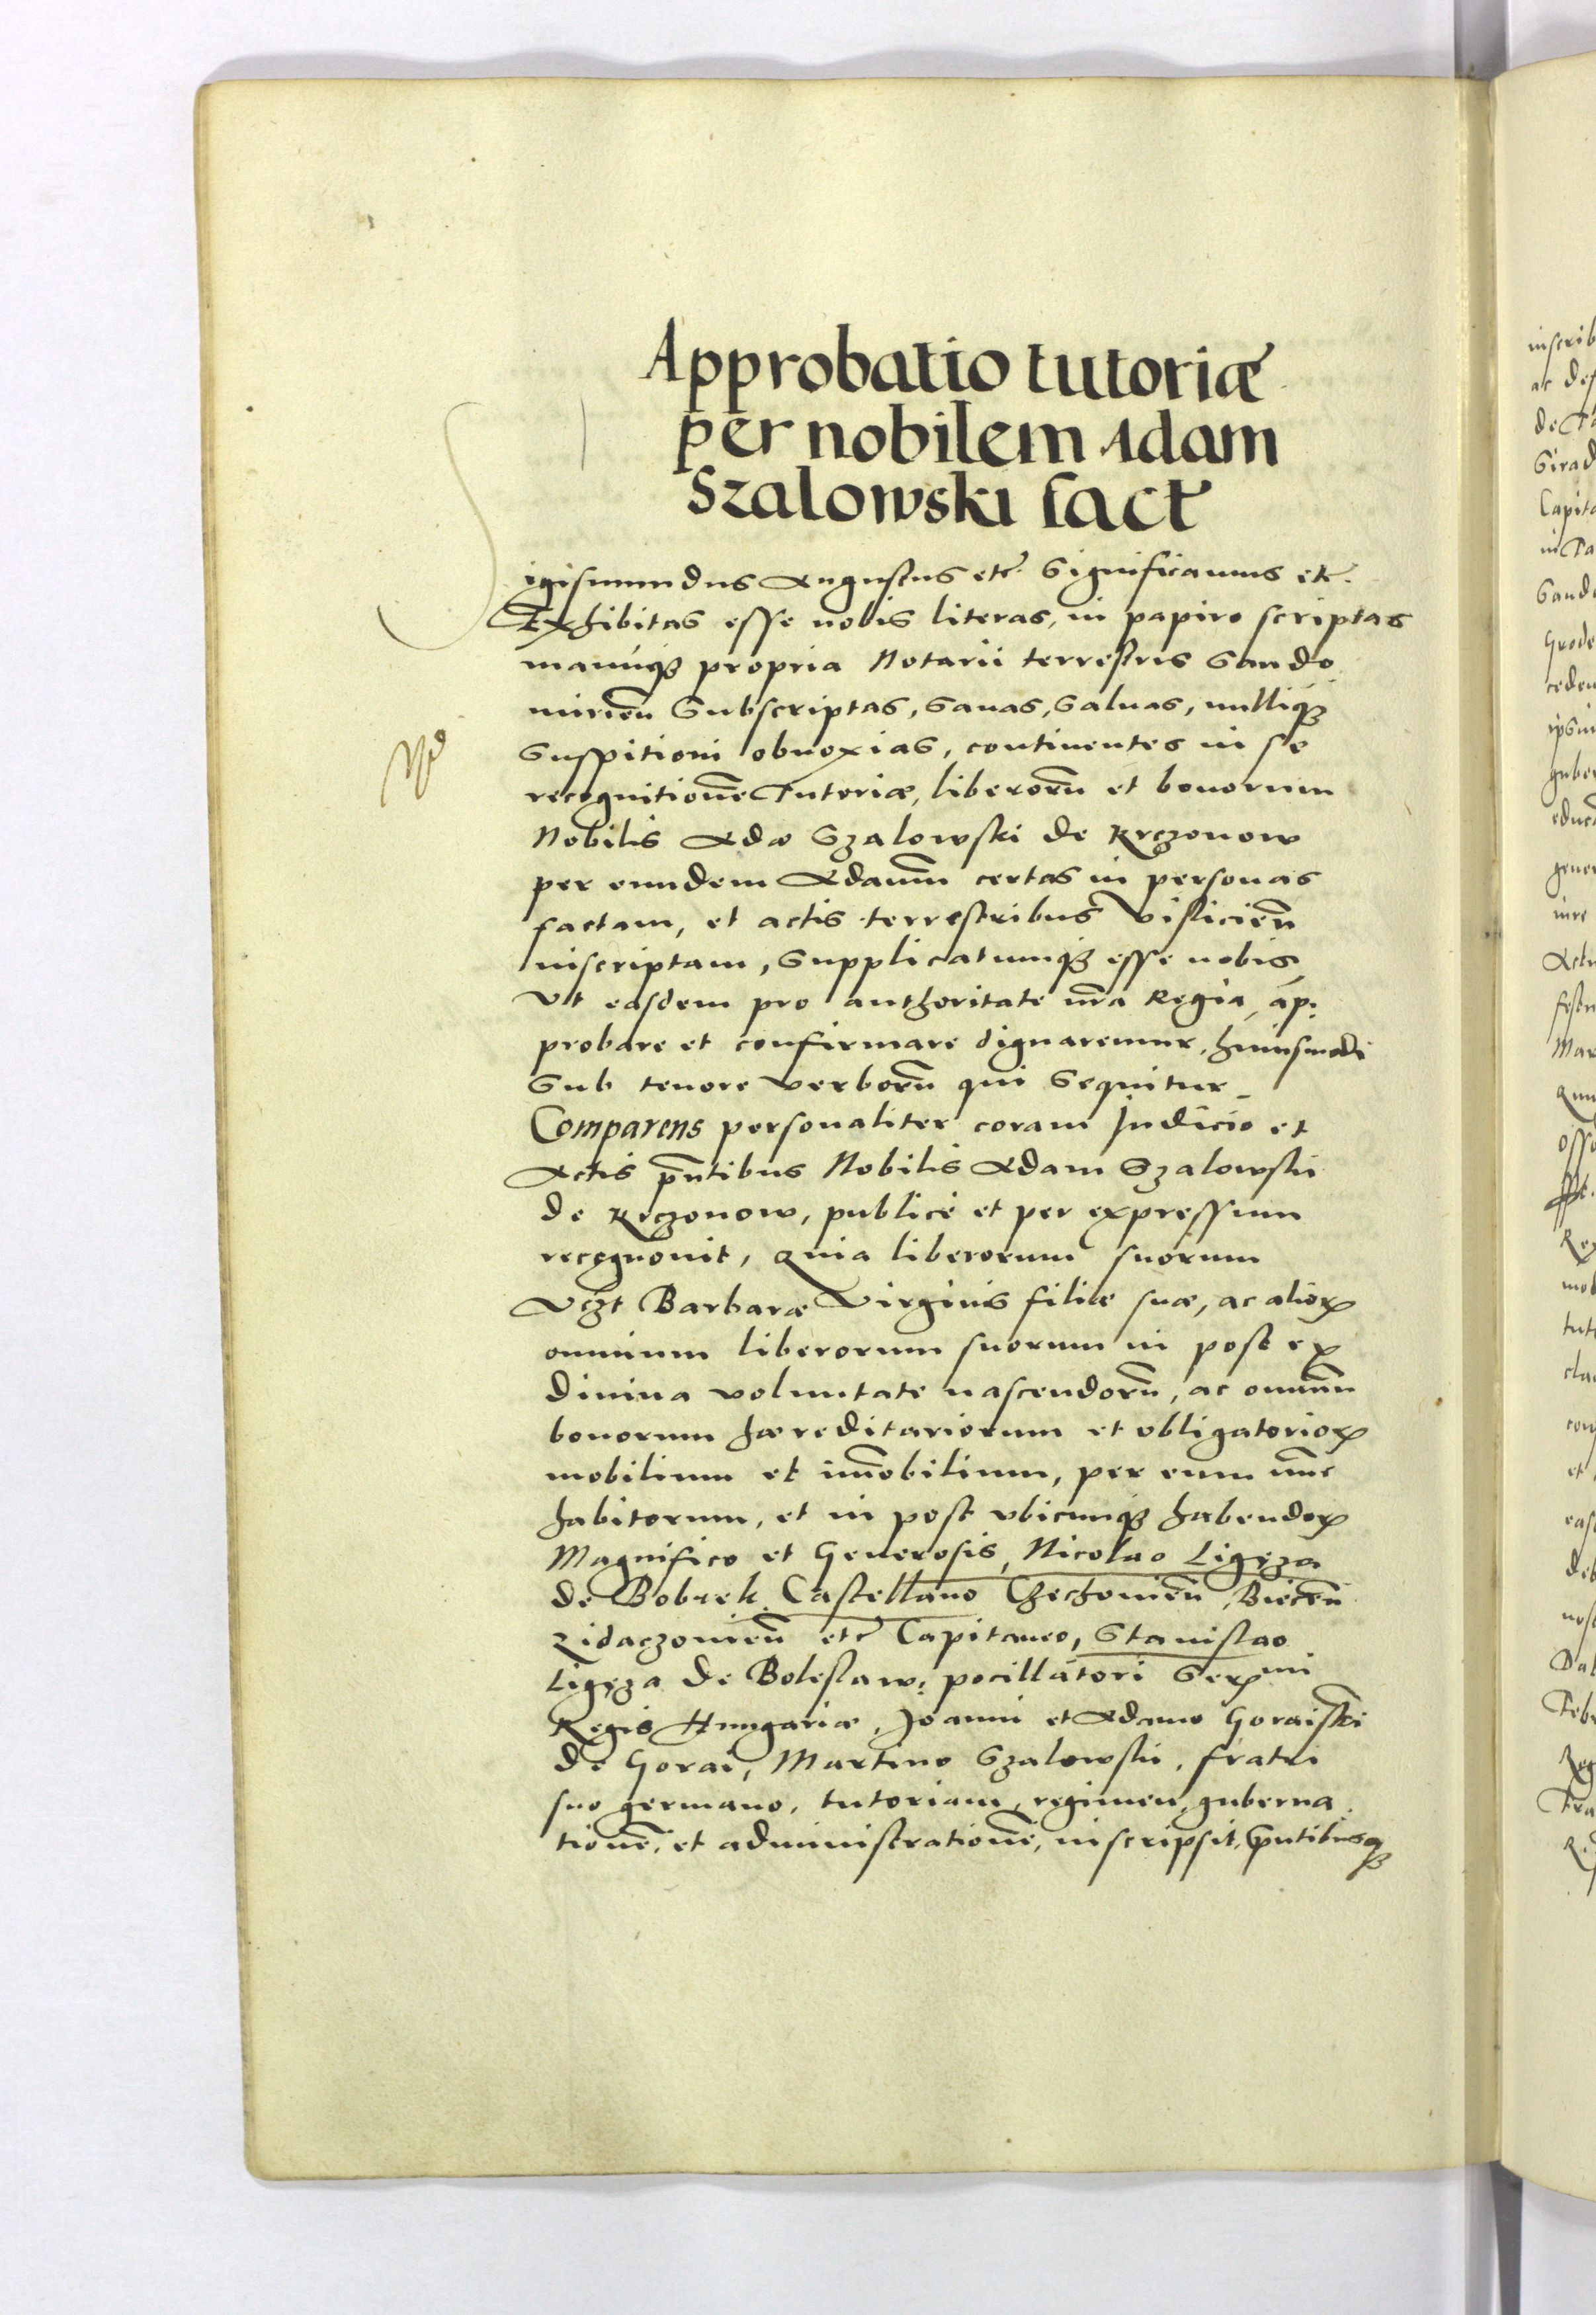 Approbatio tutoriæ
per nobilem Adam
Szalowski fact
Sigismundus Augustus etc. Significamus etc.
Exhibitas esse nobis literas, in papiro scriptas
manuq3 propria Notarii terrestris Sando
mirien̄ Subscriptas, Sanas, Saluas, nulliq3
Suspitioni obnoxias, continentes in se
recognitionē Tutoriæ, liberorū et bonorum
Nobilis Adæ Szalowski de Krczonow
per eundem Adamū certas in personas
factam, et actis terrestribus Vislicien̄
inscriptam, Supplicatumq3 esse nobis
Vt easdem pro authoritate nr̄a Regia, ap:
probare et confirmare dignaremur, huiusmodi
Sub tenore verborū qui Sequitur
Comparens personaliter coram Judicio et
Actis pn̄tibus Nobilis Adam Szalowski
de Krczonow, publice et per expressum
recognouit, Quia liberorum suorum
Vczt Barbaræ Virginis filiæ suæ, ac alioꝝ
omnium liberorum suorum in post ex
diuina voluntate nascendorū, ac omniū
bonorum hæreditariorum et obligatorioꝝ
mobilium et im̄obilium, per eum nunc
habitorum, et in post vbicunq3 habendoꝝ
Magnifico et Generosis, Nicolao Ligęza
de Bobrek Castellano Czechouien̄, Biecen̄
Zidaczouien̄ etc Capitaneo, Stanislao
Ligęza de Boleslaw: pocillatori Serᵐⁱ
Regis Hungariæ, Joanni et Adamo Goraiski
de Gorai, Martino Szalowski, fratri
suo germano, tutoriam, regimen, guberna
tionē, et administrationē, inscripsit, pn̄tibusq3